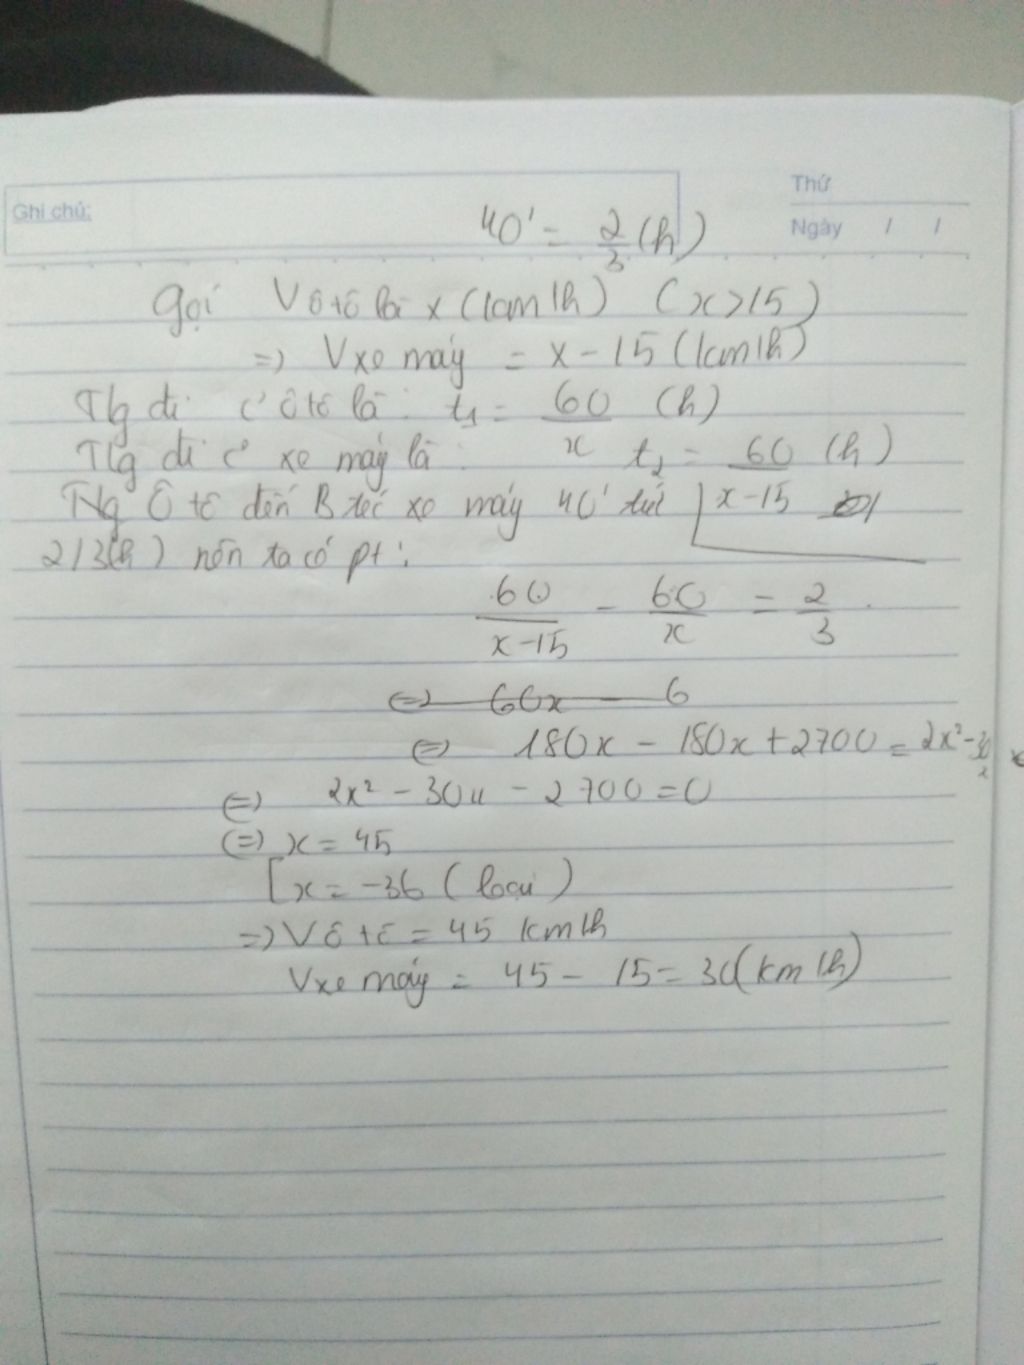 Ghi chú:
Thứ
Ngày / /
40' = 2/3 (h)
Gọi V ô tô là x (km/h) (x > 15)
=> V xe máy = x - 15 (km/h)
Tg đi c' ô tô là : t₁ = 60/x (h)
Tg đi c' xe máy là : t₂ = 60/x-15 (h)
Ng Ô tô đến B trc xe máy 40' tức
2/3(h) nên ta có pt :
60/x-15 - 60/x = 2/3
<=> 60x - 6
<=> 180x - 180x + 2700 = 2x² - 30x
<=> 2x² - 30x - 2700 = 0
<=> x = 45
[ x = -36 (loại)
=> V ô tô = 45 km/h
V xe máy = 45 - 15 = 30 (km/h)